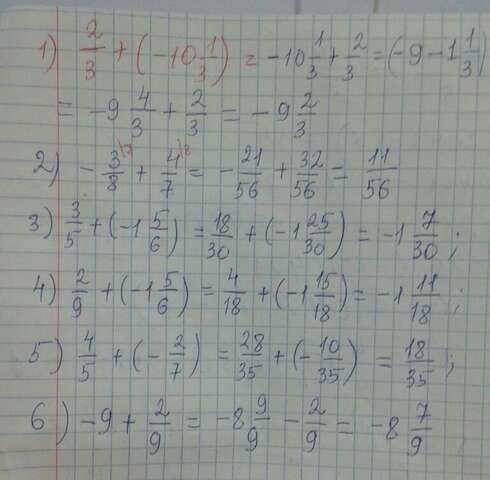 1) 2/3 + (-10 1/3) = -10 1/3 + 2/3 = (-9 - 1 1/3)
= -9 4/3 + 2/3 = -9 2/3
2) -3/8 |7 + 4/7 |8 = -21/56 + 32/56 = 11/56
3) 3/5 + (-1 5/6) = 18/30 + (-1 25/30) = -1 7/30 ;
4) 2/9 + (-1 5/6) = 4/18 + (-1 15/18) = -1 11/18 ;
5) 4/5 + (-2/7) = 28/35 + (-10/35) = 18/35 ;
6) -9 + 2/9 = -8 9/9 - 2/9 = -8 7/9